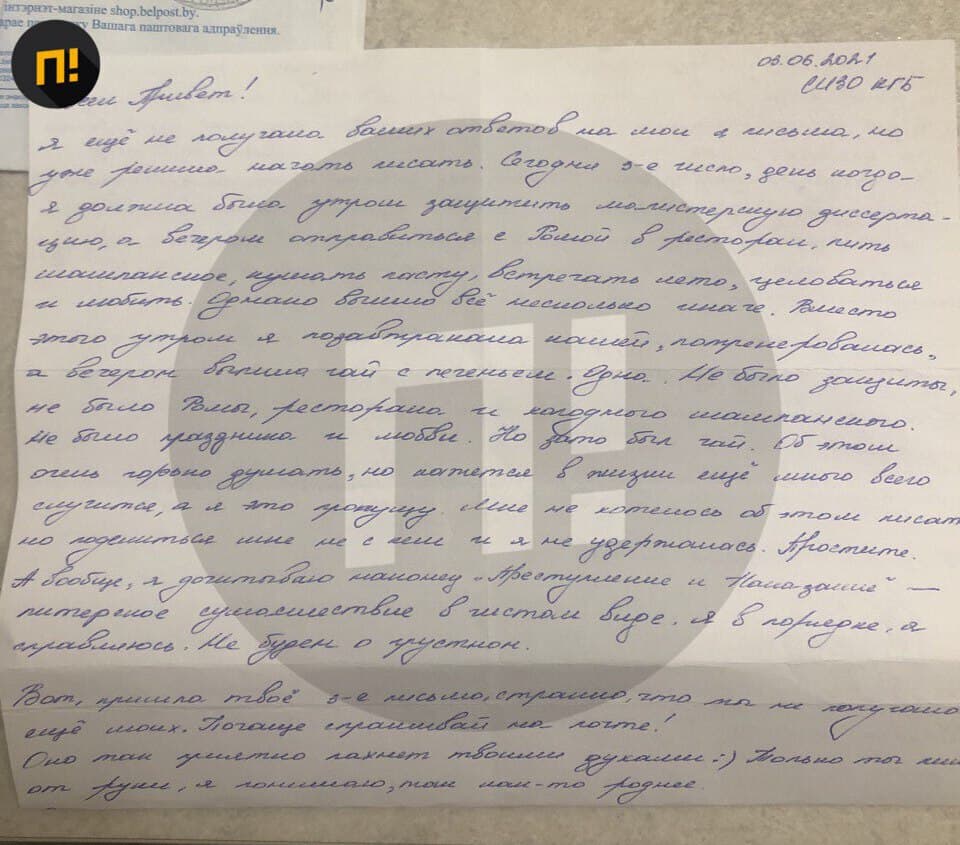 інтэрнэт-магазіне shop.belpost.by.
Вашага паштовага адпраўлення.
П!
03.06.2021
СИЗО КГБ
Привет!
Я ещё не получала ваших ответов на мои письма, но
уже решила начать писать. Сегодня 3-е число, день когда
я должна была утром защитить магистерскую диссерта-
цию, а вечером отправиться с Ромой в ресторан, пить
шампанское, кушать пасту, встречать лето, целоваться
и любить. Однако вышло всё несколько иначе. Вместо
этого утром я позавтракала кашей, потренировалась,
а вечером выпила чай с печеньем. Одна. Не было защиты,
не было Ромы, ресторана и холодного шампанского.
Не было праздника и любви. Но зато был чай. Об этом
очень горько думать, но кажется в жизни ещё много всего
случится, а я это пропущу. Мне не хотелось об этом писат
но поделиться мне не с кем и я не удержалась. Простите.
А вообще, я дочитываю наконец „Преступление и Наказание" —
питерское сумасшествие в чистом виде. Я в порядке, я
справляюсь. Не будем о грустном.
Вот, пришло твоё 3-е письмо, странно, что ты не получала
ещё моих. Почаще спрашивай на почте!
Оно так приятно пахнет твоими духами :) Только ты
от руки, я понимаю, так как-то роднее.
П!